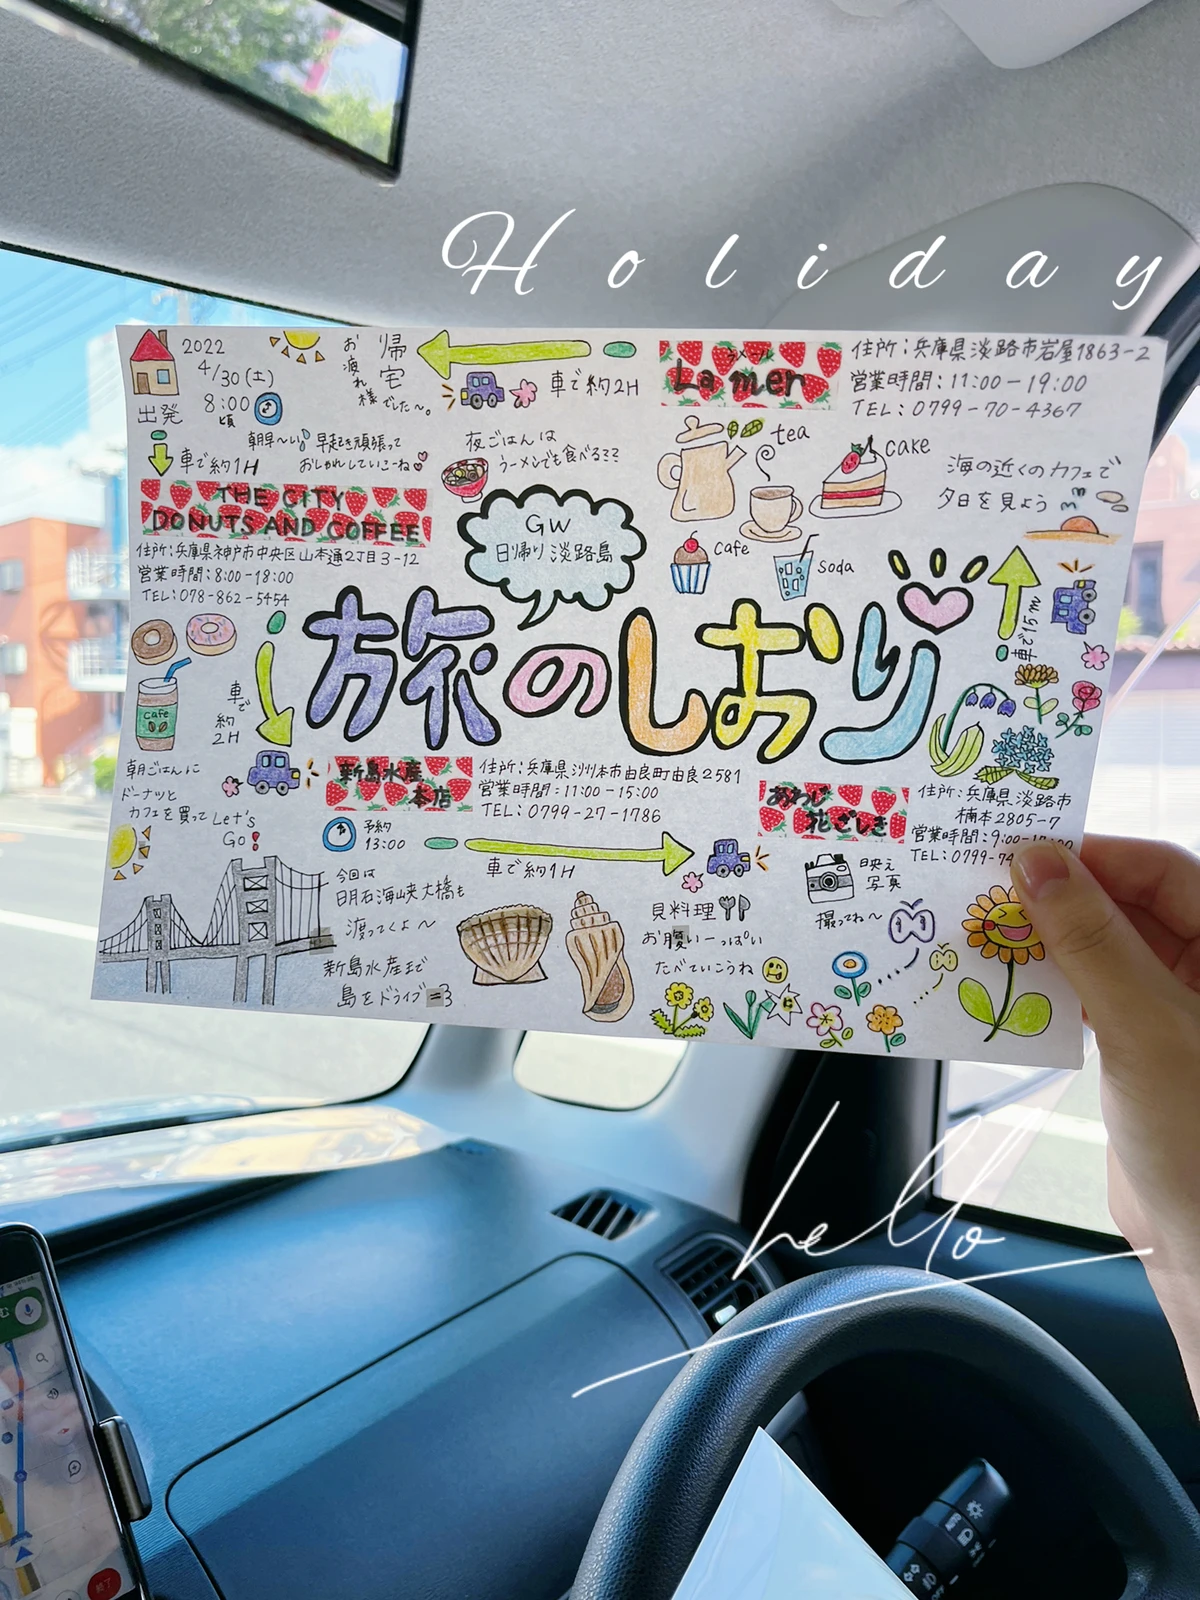 Holiday
2022
4/30(土)
8:00頃
出発
朝早〜い 早起き頑張って
おしゃれしていこーね
車で約1H
THE CITY
DONUTS AND COFFEE
住所:兵庫県神戸市中央区山本通2丁目3-12
営業時間:8:00-18:00
TEL:078-862-5454
cafe
車で
約
2H
朝ごはんに
ドーナッと
カフェを買って Let's
Go!
GW
日帰り淡路島
旅のしおり
新島水産
本店
住所:兵庫県洲本市由良町由良2581
営業時間:11:00-15:00
TEL:0799-27-1786
予約
13:00
今回は
明石海峡大橋も
渡ってくよ〜
新島水産まで
島をドライブ=3
車で約1H
貝料理
お腹いーっぱい
たべていこうね
あわじ
花さじき
住所:兵庫県淡路市
楠本2805-7
営業時間:9:00-
TEL:0799-74
映え
写真
撮ってね〜
車で15m
海の近くのカフェで
夕日を見よう
La mer
ラ・メール
住所:兵庫県淡路市岩屋1863-2
営業時間:11:00-19:00
TEL:0799-70-4367
tea
cake
cafe
soda
車で約2H
夜ごはんは
ラーメンでも食べる??
帰宅
お疲れ様でした〜。
hello
終了